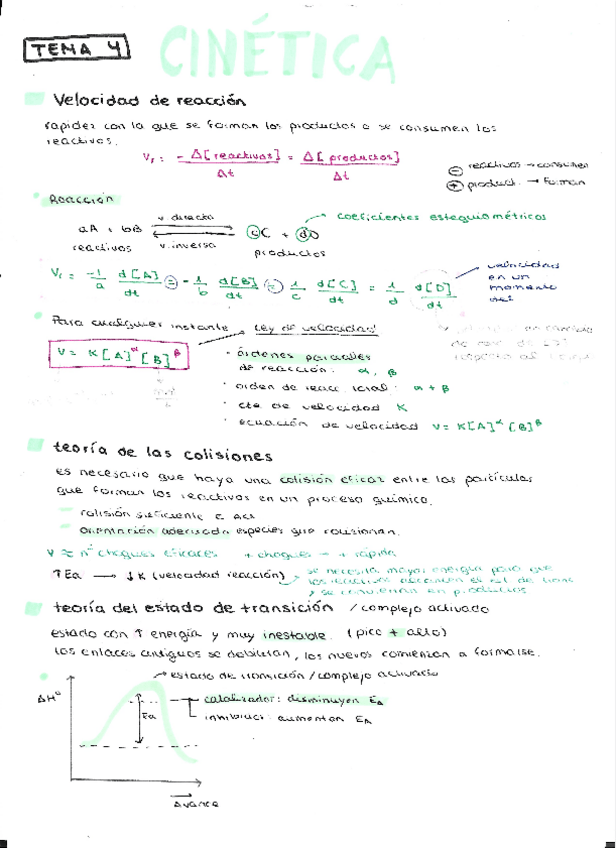 TEMA 4
CINÉTICA
Velocidad de reacción
rapidez con la que se forman los productos o se consumen los
reactivos.
Vr = -Δ[reactivos]/Δt = Δ[productos]/Δt
⊖ reactivos → consumen
⊕ product. → forman
Reacción
aA + bB ⇌ cC + dD → coeficientes estequiométricos
v. directa
v. inversa
reactivos productos
Vr = -1/a d[A]/dt = -1/b d[B]/dt = 1/c d[C]/dt = 1/d d[D]/dt
velocidad
en un
momento
Para cualquier instante
Ley de velocidad
V = K[A]^α [B]^β
· órdenes parciales
de reacción: α, β
· orden de reacc. α + β
· cte de velocidad K
· ecuación de velocidad V = K[A]^α [B]^β
teoría de las colisiones
es necesario que haya una colisión eficaz entre las partículas
que forman los reactivos en un proceso químico.
colisión suficiente
orientación adecuada especies que colisionan.
V ≈ nº choques eficaces + choques → + rápida
↑Ea → ↓K (velocidad reacción)
se necesita mayor energía para que
y se conviertan en productos
teoría del estado de transición / complejo activado
estado con ↑ energía y muy inestable. (pico + alto)
los enlaces antiguos se debilitan, los nuevos comienzan a formarse.
→ estado de transición / complejo activado
ΔHº
Ea
catalizador: disminuyen EA
inhibidor: aumentan EA
Avance